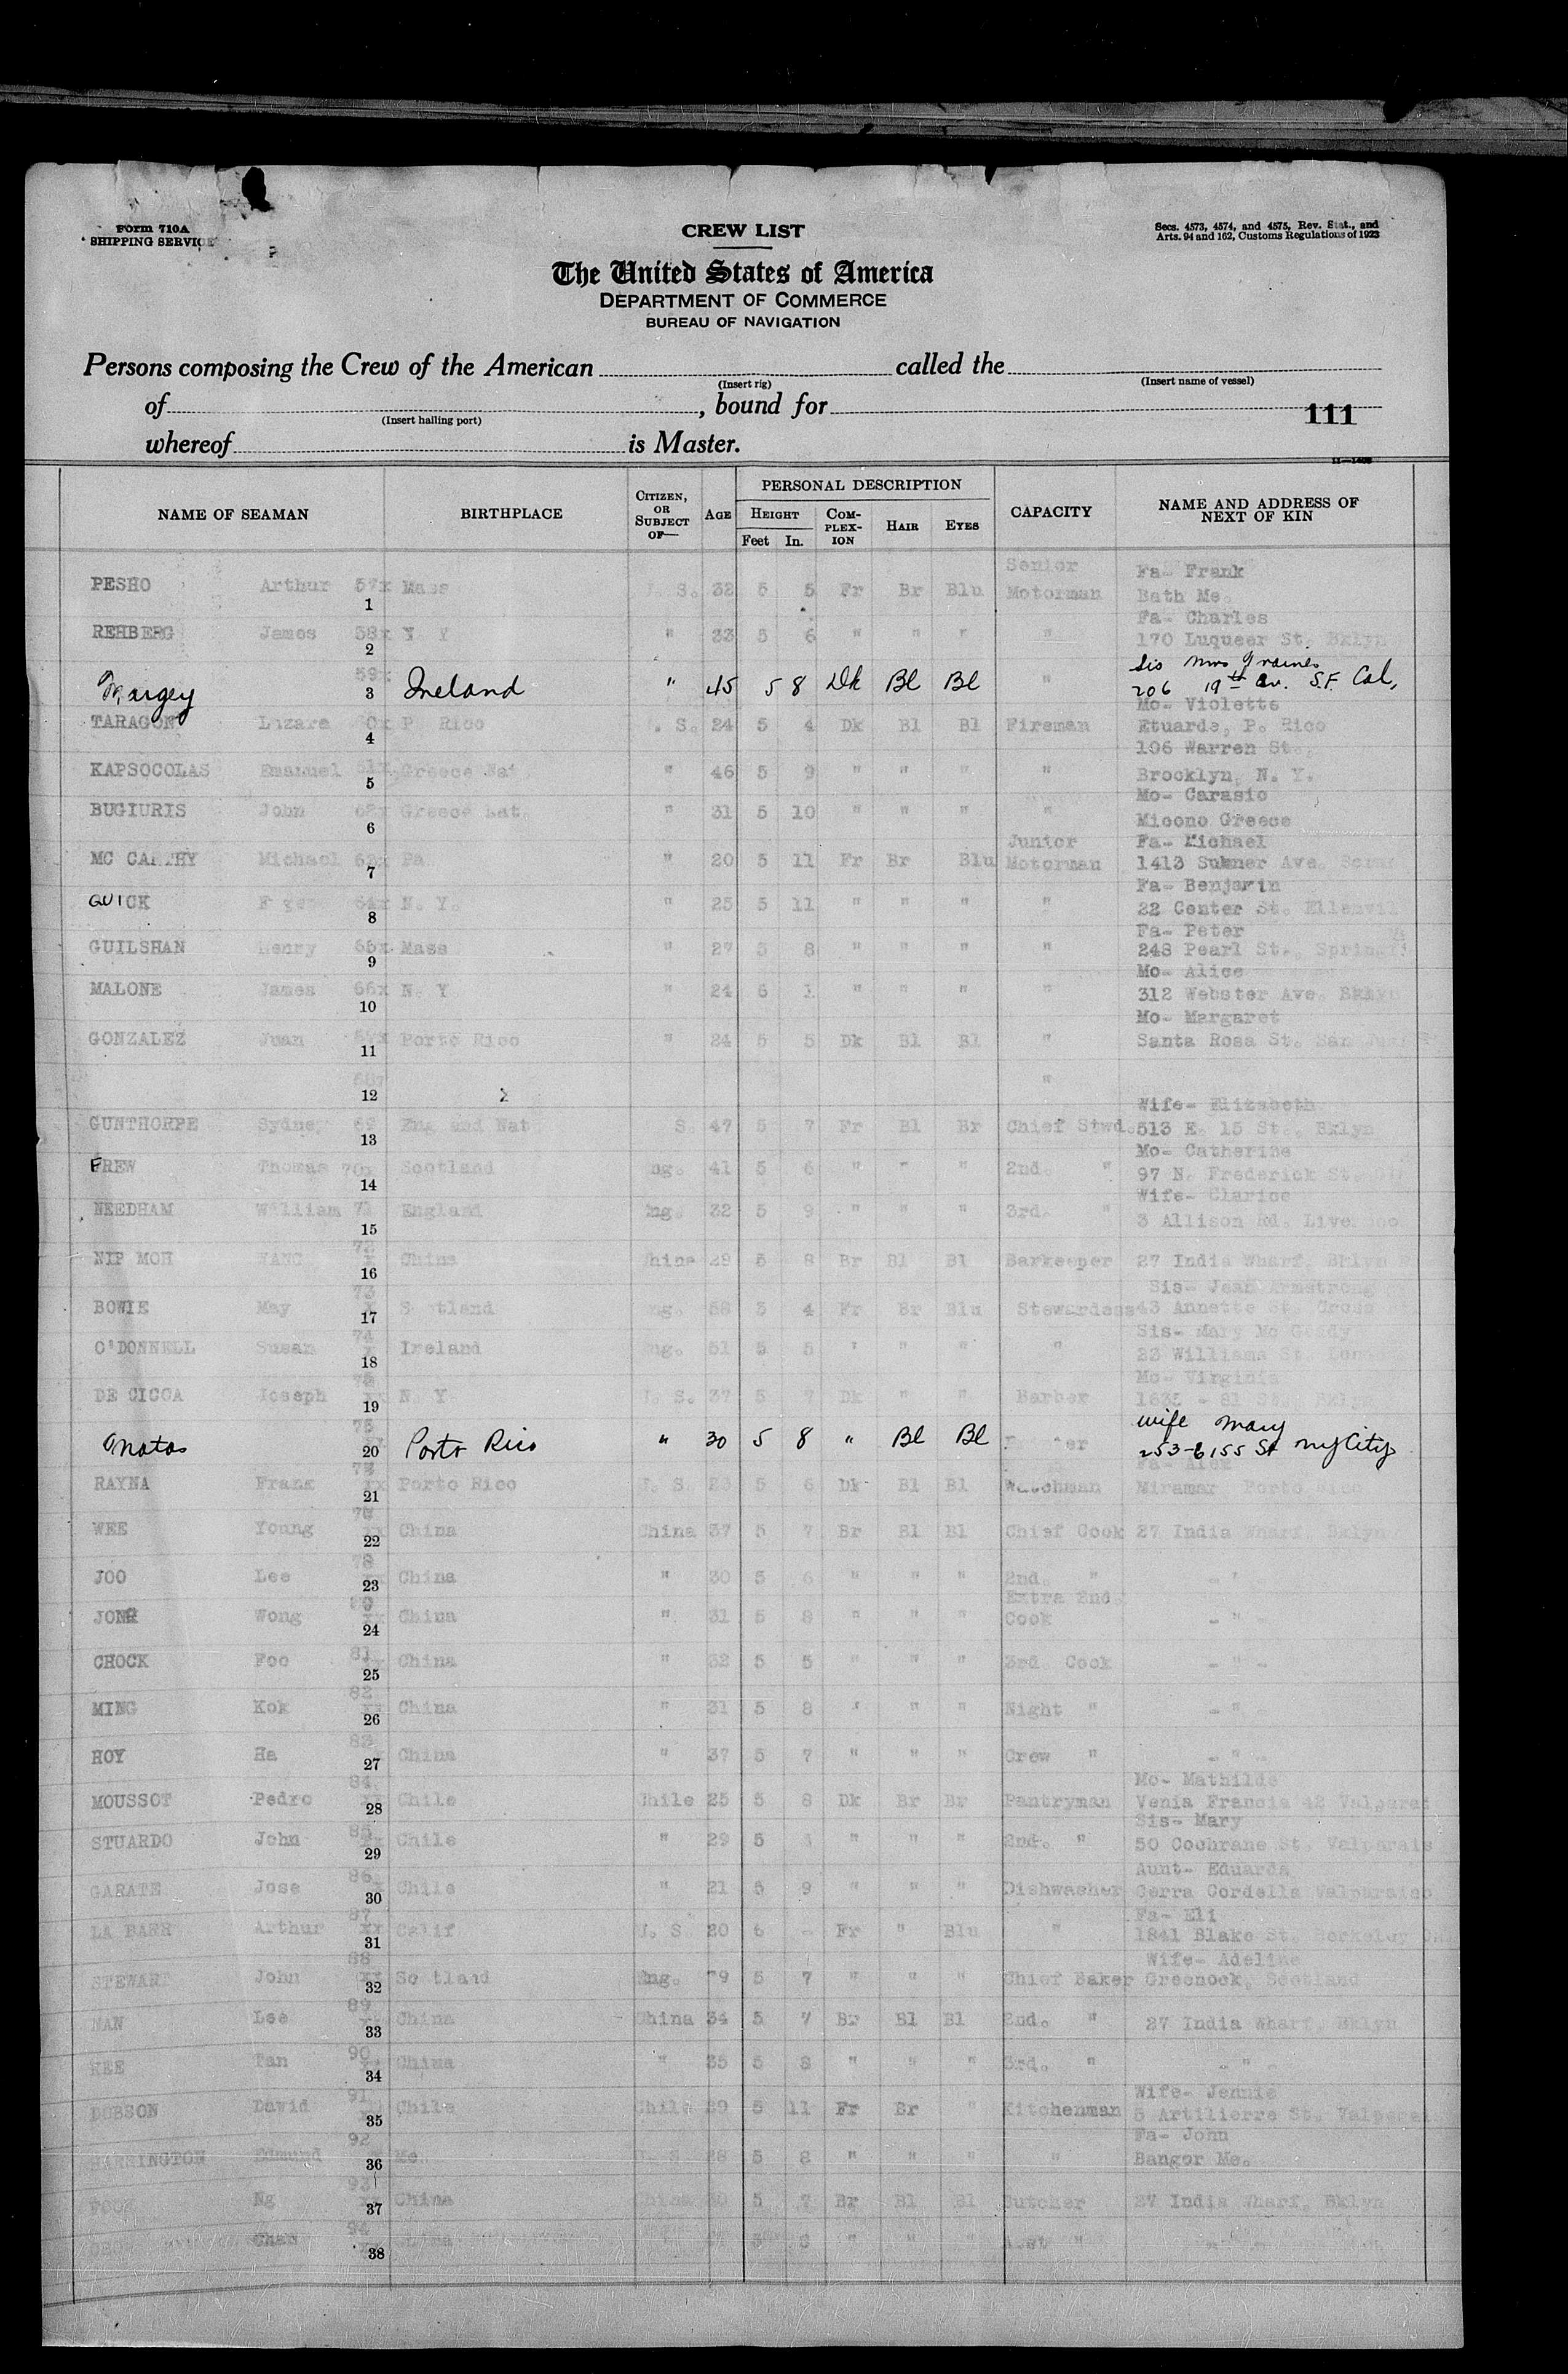 Form 710A
SHIPPING SERVICE
CREW LIST
Secs. 4573, 4574, and 4575, Rev. Stat., and
Arts. 94 and 162, Customs Regulations of 1923
The United States of America
DEPARTMENT OF COMMERCE
BUREAU OF NAVIGATION
Persons composing the Crew of the American called the
(Insert rig) (Insert name of vessel)
of , bound for 111
(Insert hailing port)
whereof is Master.
NAME OF SEAMAN BIRTHPLACE CITIZEN, OR SUBJECT OF— AGE PERSONAL DESCRIPTION HEIGHT Feet In. COMPLEXION HAIR EYES CAPACITY NAME AND ADDRESS OF NEXT OF KIN
Senior Fa- Frank
PESHO Arthur 57x 1 Mass U. S. 32 5 5 Fr Br Blu Motorman Bath Me.
Fa- Charles
REHBERG James 58x 2 N. Y " 33 5 6 " " " " 170 Luqueer St. Bklyn
Sis Mrs
59x 3 Ireland " 45 5 8 Dk Bl Bl " 206 19th Av. S.F. Cal,
Mo- Violetts
TARAGON Lazare 4 P. Rico U. S. 24 5 4 Dk Bl Bl Fireman Etuarde, P. Rico
106 Warren St.,
KAPSOCOLAS Emanuel 5 Greece Nat " 46 5 9 " " " " Brooklyn, N. Y.
Mo- Carasio
BUGIURIS John 62x 6 Greece " 31 5 10 " " " " Micono Greece
Junior Fa- Michael
MC CARTHY Michael 63x 7 Pa " 20 5 11 Fr Br Blu Motorman 1413 Sumner Ave.
Fa- Benjamin
QUICK 64x 8 N. Y. " 25 5 11 " " " " 22 Center St. Ellenvil
Fa- Peter
GUILSHAN Henry 65x 9 Mass " 27 5 8 " " " " 248 Pearl St., Springf
Mo- Alice
MALONE James 66x 10 N. Y " 24 6 1 " " " " 312 Webster Ave. Bklyn
Mo- Margaret
GONZALEZ Juan 11 Porto Rico " 24 5 5 Dk Bl Bl " Santa Rosa St. San Juan
12 "
Wife- Elizabeth
GUNTHORPE Sydney 69 13 Eng and Nat S. 47 5 7 Fr Bl Br Chief Stwd. 513 E. 15 St., Bklyn
Mo- Catherine
FREW Thomas 70x 14 Scotland Eng. 41 5 6 " " " 2nd. " 97 N. Frederick St.
Wife- Clarice
NEEDHAM William 71 15 England Eng. 32 5 9 " " " 3rd. " 3 Allison Rd. Liverpoo
72
NIP MOH YANG 16 China China 29 5 8 Br Bl Bl Barkeeper 27 India Wharf, Bklyn
73 Sis- Jean Armstrong
BOWIE May 17 Scotland Eng. 58 5 4 Fr Br Blu Stewardess 43 Annette St. Cross
74 Sis- Mary Mc Grady
O'DONNELL Susan 18 Ireland Eng. 51 5 5 " " " " 23 Williams St.
Mo- Virginia
DE CICCA Joseph 19 N Y U. S. 37 5 Dk " " Barber 81 St., Bklyn
wife Mary
Matos 20 Porto Rico " 30 5 8 " Bl Bl 253-E 155 St NY City
Fa- Alex
RAYNA Frank 21 Porto Rico U. S. 5 6 Dk Bl Bl Watchman Miramar Porto Rico
WEE Young 22 China China 37 5 7 Br Bl Bl Chief Cook 27 India Wharf, Bklyn
JOO Lee 23 China " 30 5 6 " " " 2nd. " - " -
Extra 2nd.
JONG Wong 24 China " 31 5 8 " " " Cook - " -
81
CHOCK Foo 25 China " 32 5 5 " " " 3rd Cook - " -
82
MING Kok 26 China " 31 5 8 " " " Night " - " -
83
HOY Ha 27 China " 37 5 7 " " " Crew " - " -
84 Mo- Mathilde
MOUSSOT Pedro 28 Chile Chile 25 5 8 Dk Br Br Pantryman Venia Francia 42 Valparai
85 Sis- Mary
STUARDO John 29 Chile " 29 5 " " " 2nd. " 50 Cochrane St. Valparais
86 Aunt- Eduarda
GARATE Jose 30 Chile " 21 5 9 " " " Dishwasher Cerra Cordella Valparaiso
87 Fa- Eli
LA BARR Arthur 31 Calif U. S. 20 6 - Fr " Blu " 1841 Blake St. Berkeley
88 Wife- Adeline
STEWART John 32 Scotland Eng. 5 7 " " " Chief Baker Greenock, Scotland
89
NAN Lee 33 China China 34 5 7 Br Bl Bl 2nd. " 27 India Wharf, Bklyn
90
KEE Tan 34 China " 35 5 8 " " " 3rd. " - " -
91 Wife- Jennie
DOBSON David 35 Chile Chile 29 5 11 Fr Br " Kitchenman 5 Artilierre St. Valparai
92 Fa- John
HARRINGTON Edmund 36 Me. U. S. 28 5 8 " " " " Bangor Me.
93
Ng 37 China China 5 7 Br Bl Bl Butcher 27 India Wharf, Bklyn
94
Chan 38 China " 8 " " " Asst " - " -